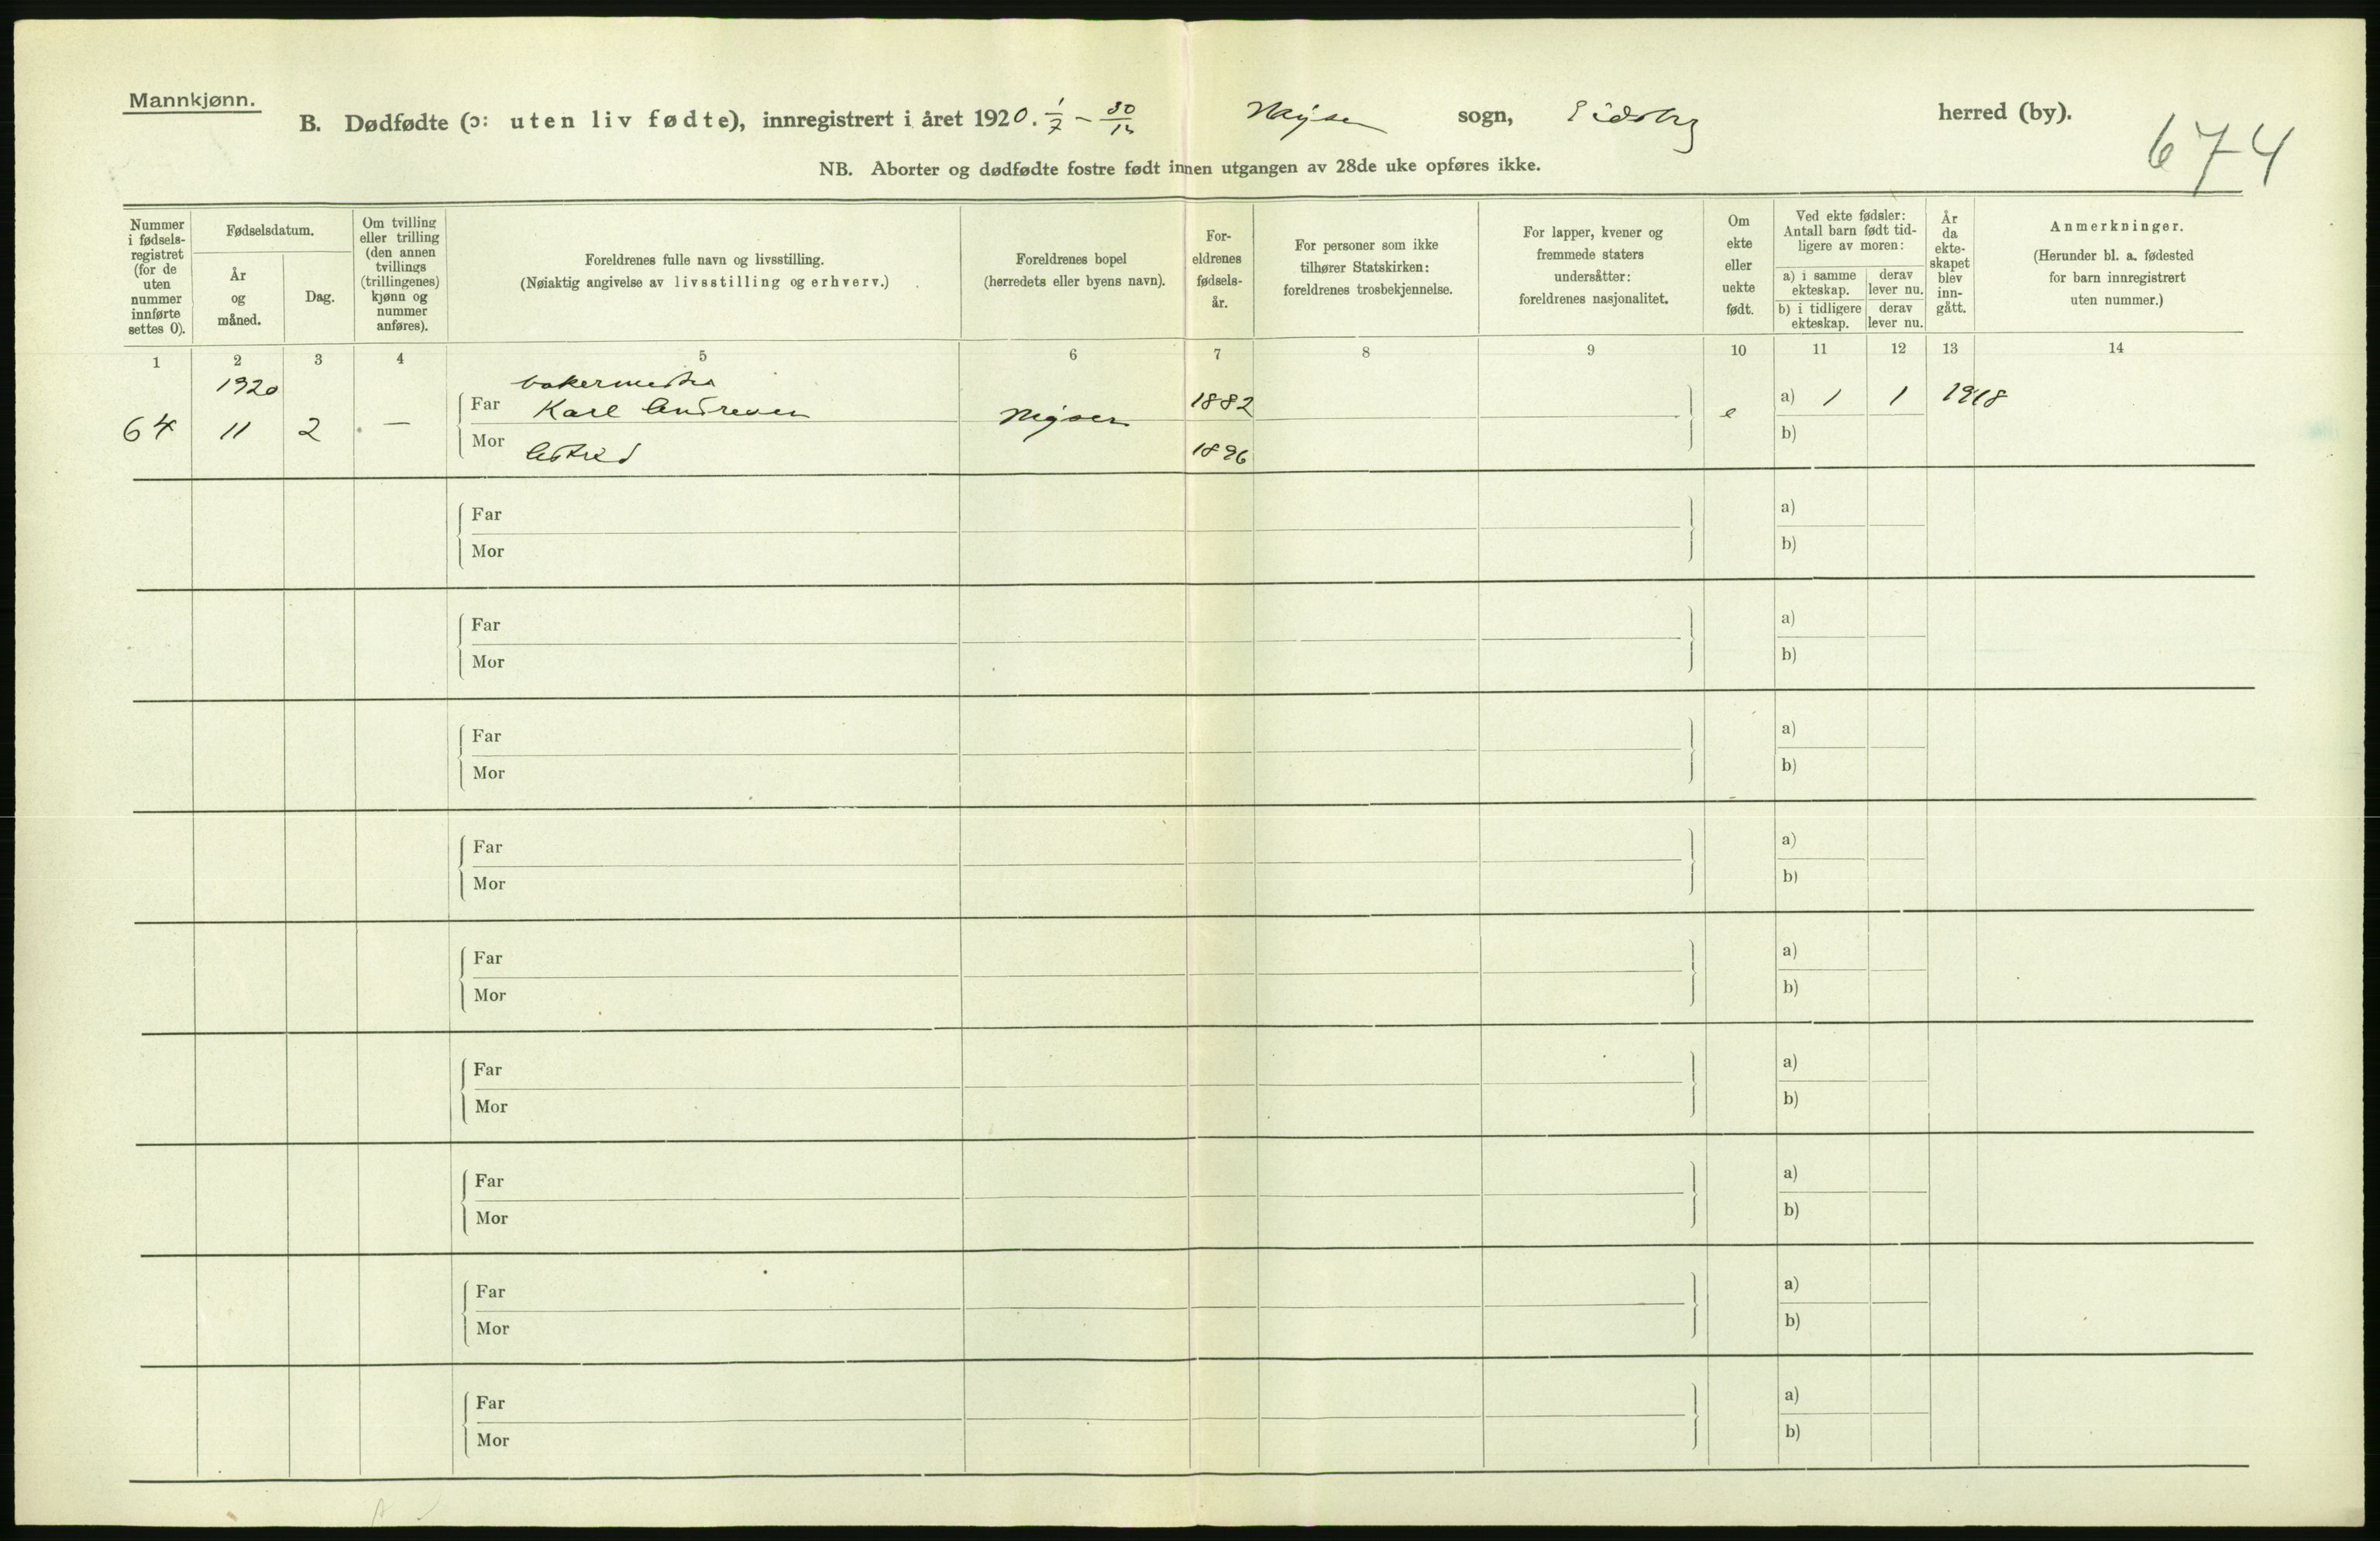 Mannkjønn.
B. Dødfødte (ɔ: uten liv fødte), innregistrert i året 1920. 1/7 – 30/12 Mysen sogn, Eidsberg herred (by).
674
NB. Aborter og dødfødte fostre født innen utgangen av 28de uke opføres ikke.
Nummer i fødsels-registret (for de uten nummer innførte settes 0).
Fødselsdatum.
År og måned.
Dag.
Om tvilling eller trilling (den annen tvillings (trillingenes) kjønn og nummer anføres).
Foreldrenes fulle navn og livsstilling.
(Nøiaktig angivelse av livsstilling og erhverv.)
Foreldrenes bopel
(herredets eller byens navn).
For-eldrenes fødsels-år.
For personer som ikke tilhører Statskirken: foreldrenes trosbekjennelse.
For lapper, kvener og fremmede staters undersåtter: foreldrenes nasjonalitet.
Om ekte eller uekte født.
Ved ekte fødsler: Antall barn født tid-ligere av moren:
a) i samme ekteskap.
derav lever nu.
b) i tidligere ekteskap.
derav lever nu.
År da ekte-skapet blev inn-gått.
Anmerkninger.
(Herunder bl. a. fødested for barn innregistrert uten nummer.)
1 2 3 4 5 6 7 8 9 10 11 12 13 14
1920 bakermester
Far Karl Andresen 1882 a) 1 1 1918
64 11 2 — Mysen e
Mor Astrid 1896 b)
Far a)
Mor b)
Far a)
Mor b)
Far a)
Mor b)
Far a)
Mor b)
Far a)
Mor b)
Far a)
Mor b)
Far a)
Mor b)
Far a)
Mor b)
Far a)
Mor b)